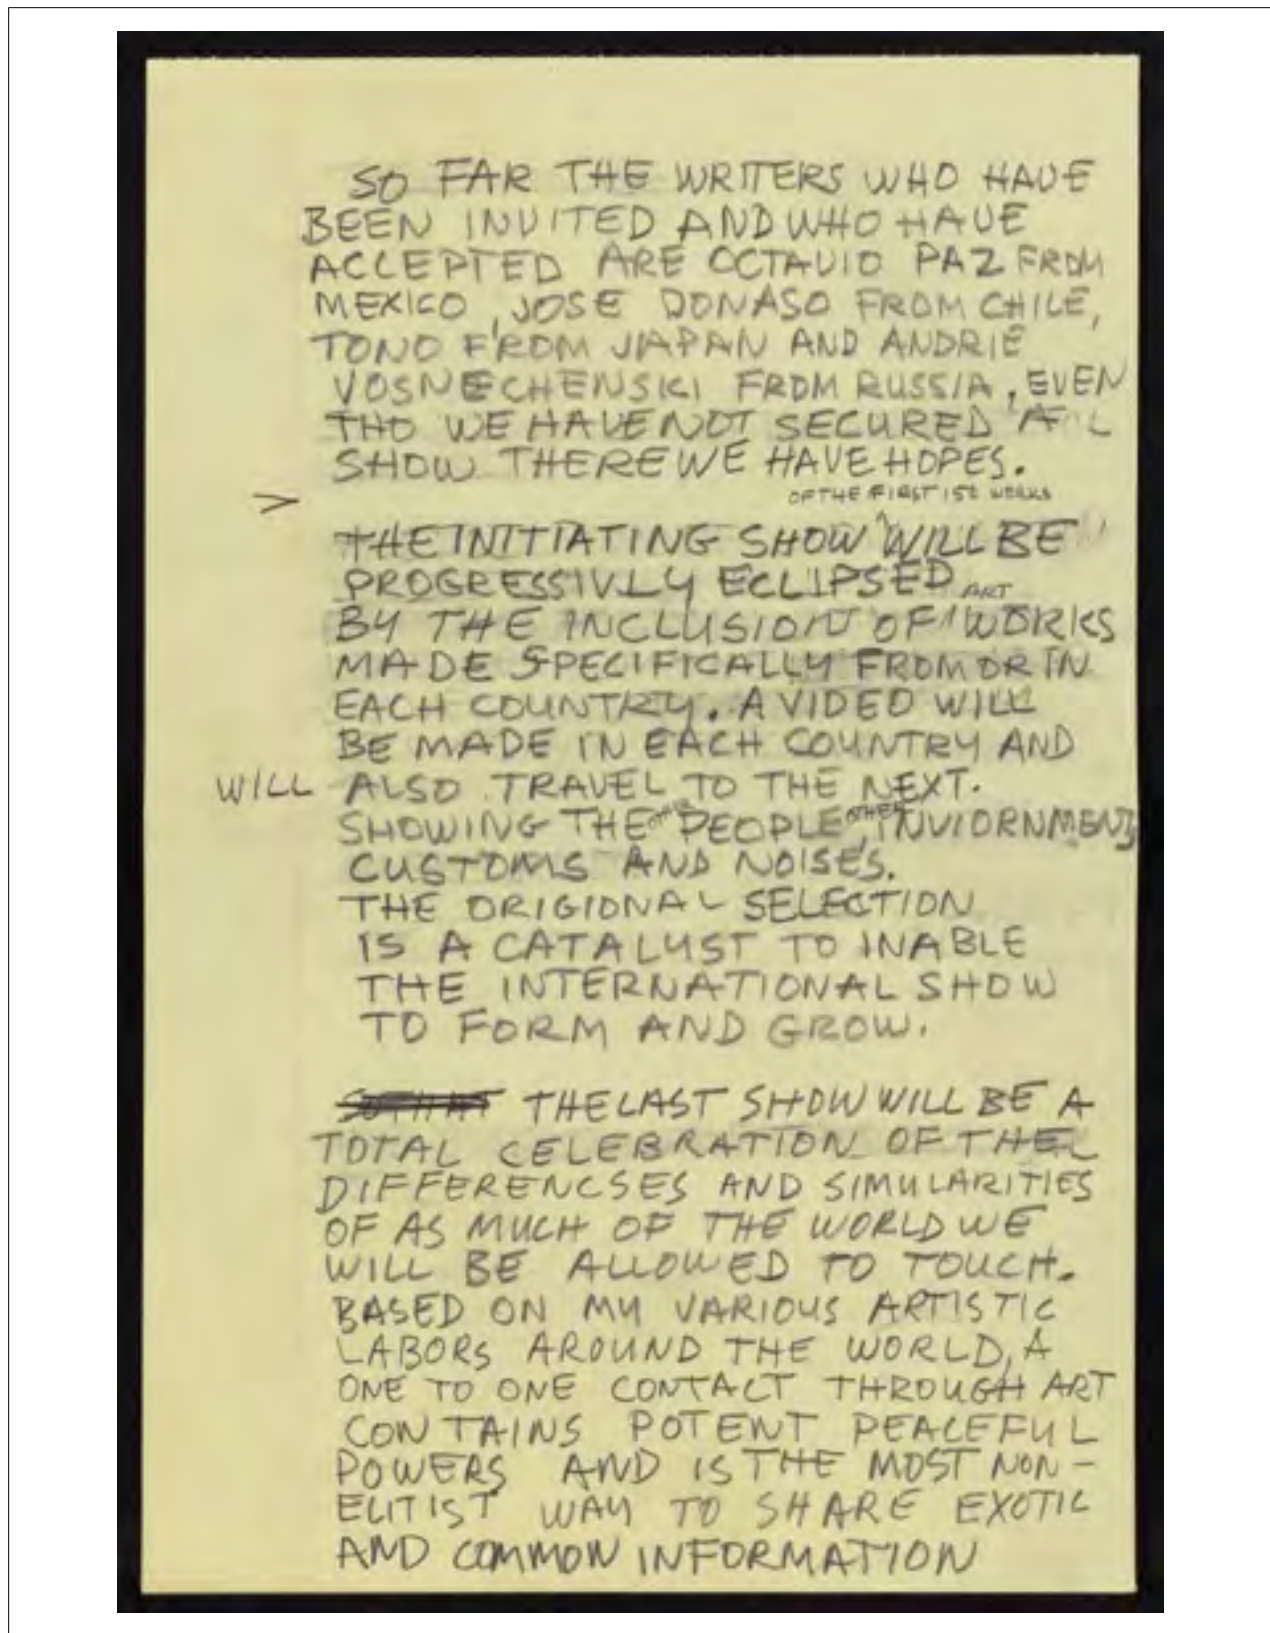 SO FAR THE WRITERS WHO HAVE
BEEN INVITED AND WHO HAVE
ACCEPTED ARE OCTAVIO PAZ FROM
MEXICO, JOSE DONASO FROM CHILE,
TONO FROM JAPAN AND ANDRIE
VOSNECHENSKI FROM RUSSIA, EVEN
THO WE HAVE NOT SECURED A
SHOW THERE WE HAVE HOPES.
>
OF THE FIRST 150 WORKS
THE INITIATING SHOW WILL BE
PROGRESSIVLY ECLIPSED
ART
BY THE INCLUSION OF WORKS
MADE SPECIFICALLY FROM OR IN
EACH COUNTRY. A VIDEO WILL
BE MADE IN EACH COUNTRY AND
WILL ALSO TRAVEL TO THE NEXT.
SHOWING THE OTHER PEOPLE, OTHER INVIORNMENTS
CUSTOMS AND NOISES.
THE ORIGIONAL SELECTION
IS A CATALYST TO INABLE
THE INTERNATIONAL SHOW
TO FORM AND GROW.
THE LAST SHOW WILL BE A
TOTAL CELEBRATION OF THE
DIFFERENCSES AND SIMULARITIES
OF AS MUCH OF THE WORLD WE
WILL BE ALLOWED TO TOUCH.
BASED ON MY VARIOUS ARTISTIC
LABORS AROUND THE WORLD, A
ONE TO ONE CONTACT THROUGH ART
CONTAINS POTENT PEACEFUL
POWERS AND IS THE MOST NON-
ELITIST WAY TO SHARE EXOTIC
AND COMMON INFORMATION